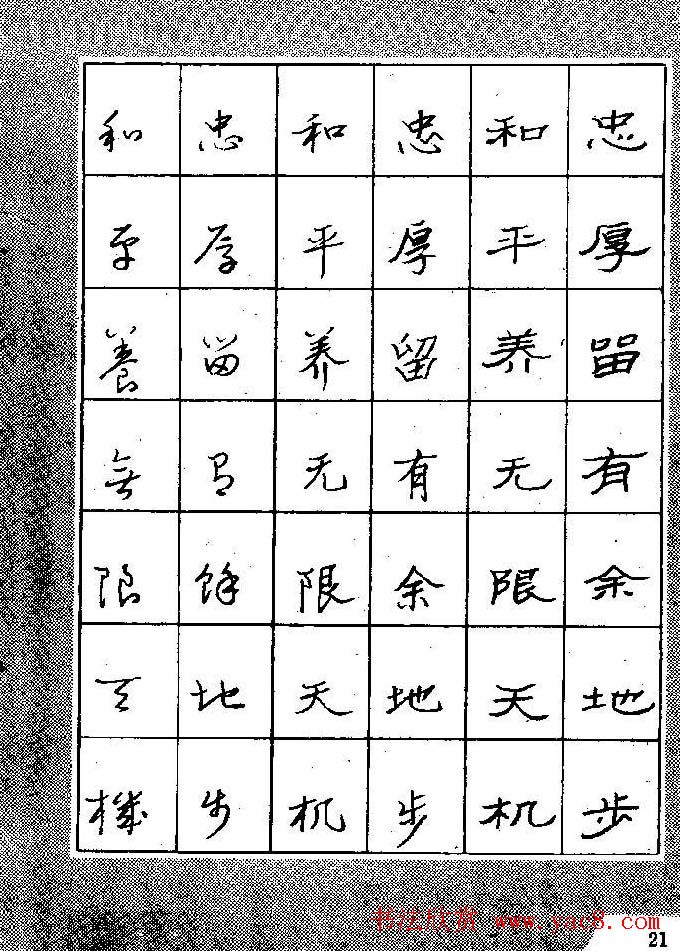 忠厚留有余地步
和平养无限天机
忠厚留有余地步
和平养无限天机
忠厚留有餘地步
和平養無限天機
书法欣赏 www.yac8.com
21